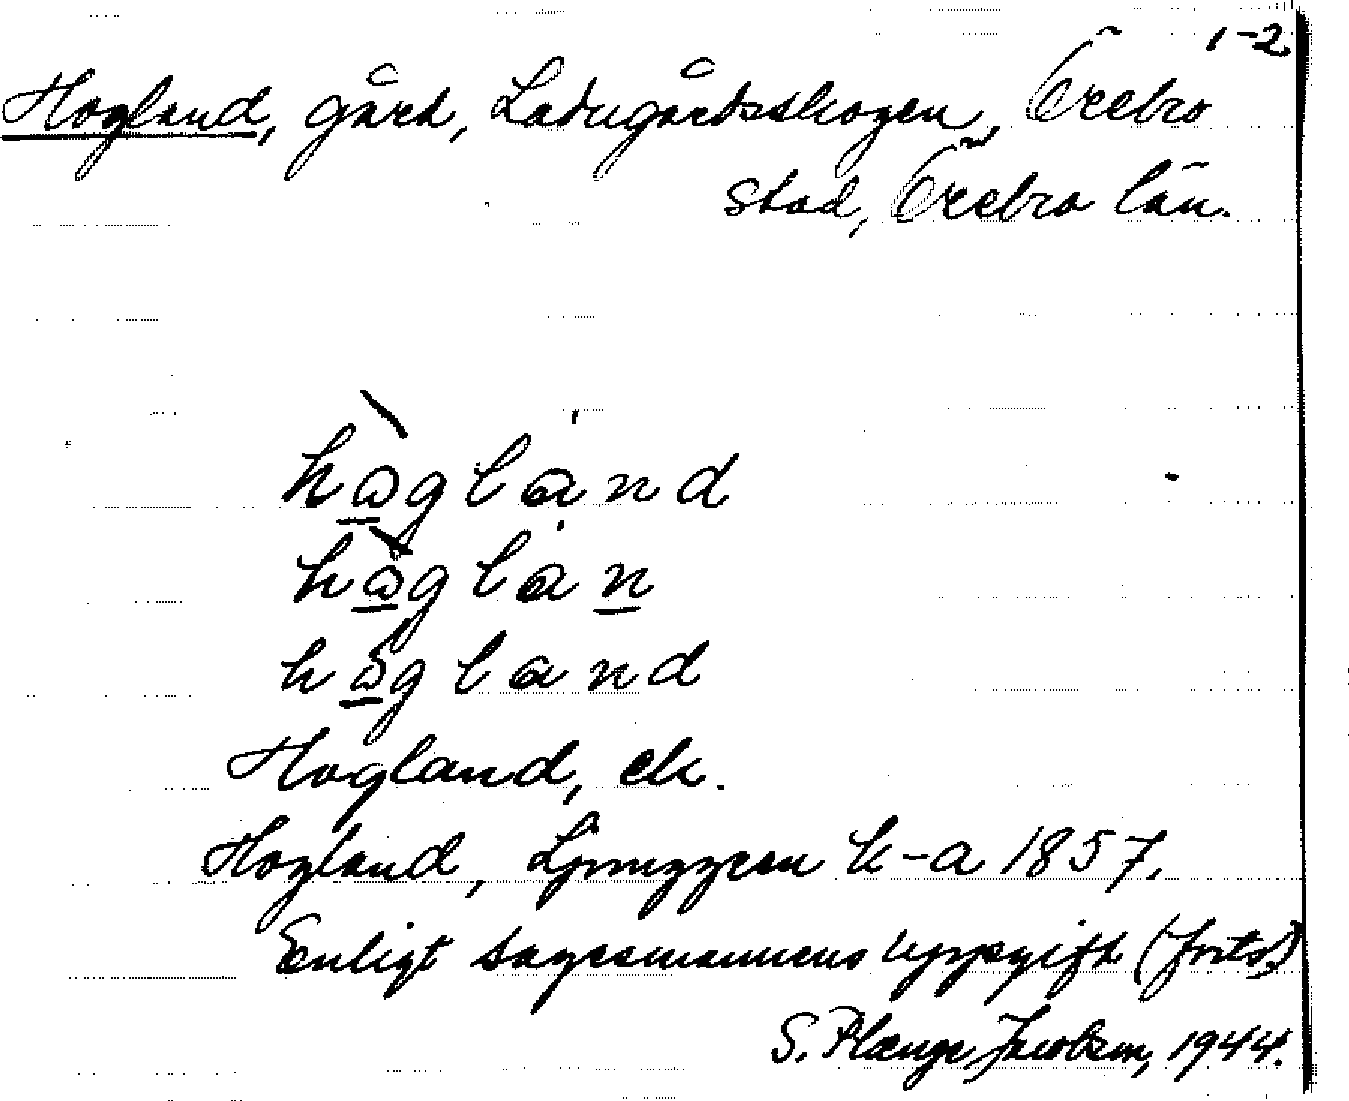 1-2
Hogland, gård, Ladugårdsskogen, Örebro
stad, Örebro län.
hògland
hòglan
hògland
Hogland, ek.
Hogland, Ljunggren k-a 1857.
Enligt sagesmannens uppgift (forts)
S. Plænge Jacobsen, 1944.